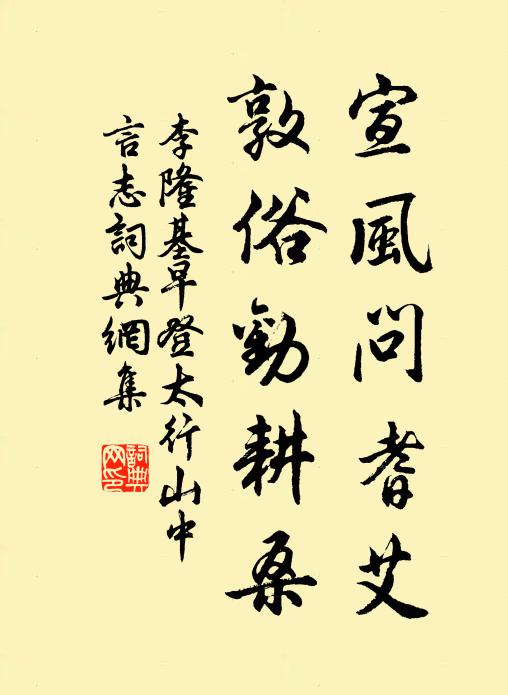 宣風問耆艾
敦俗勸耕桑
李隆基早登太行山中
言志詞典網集
詞典
网印